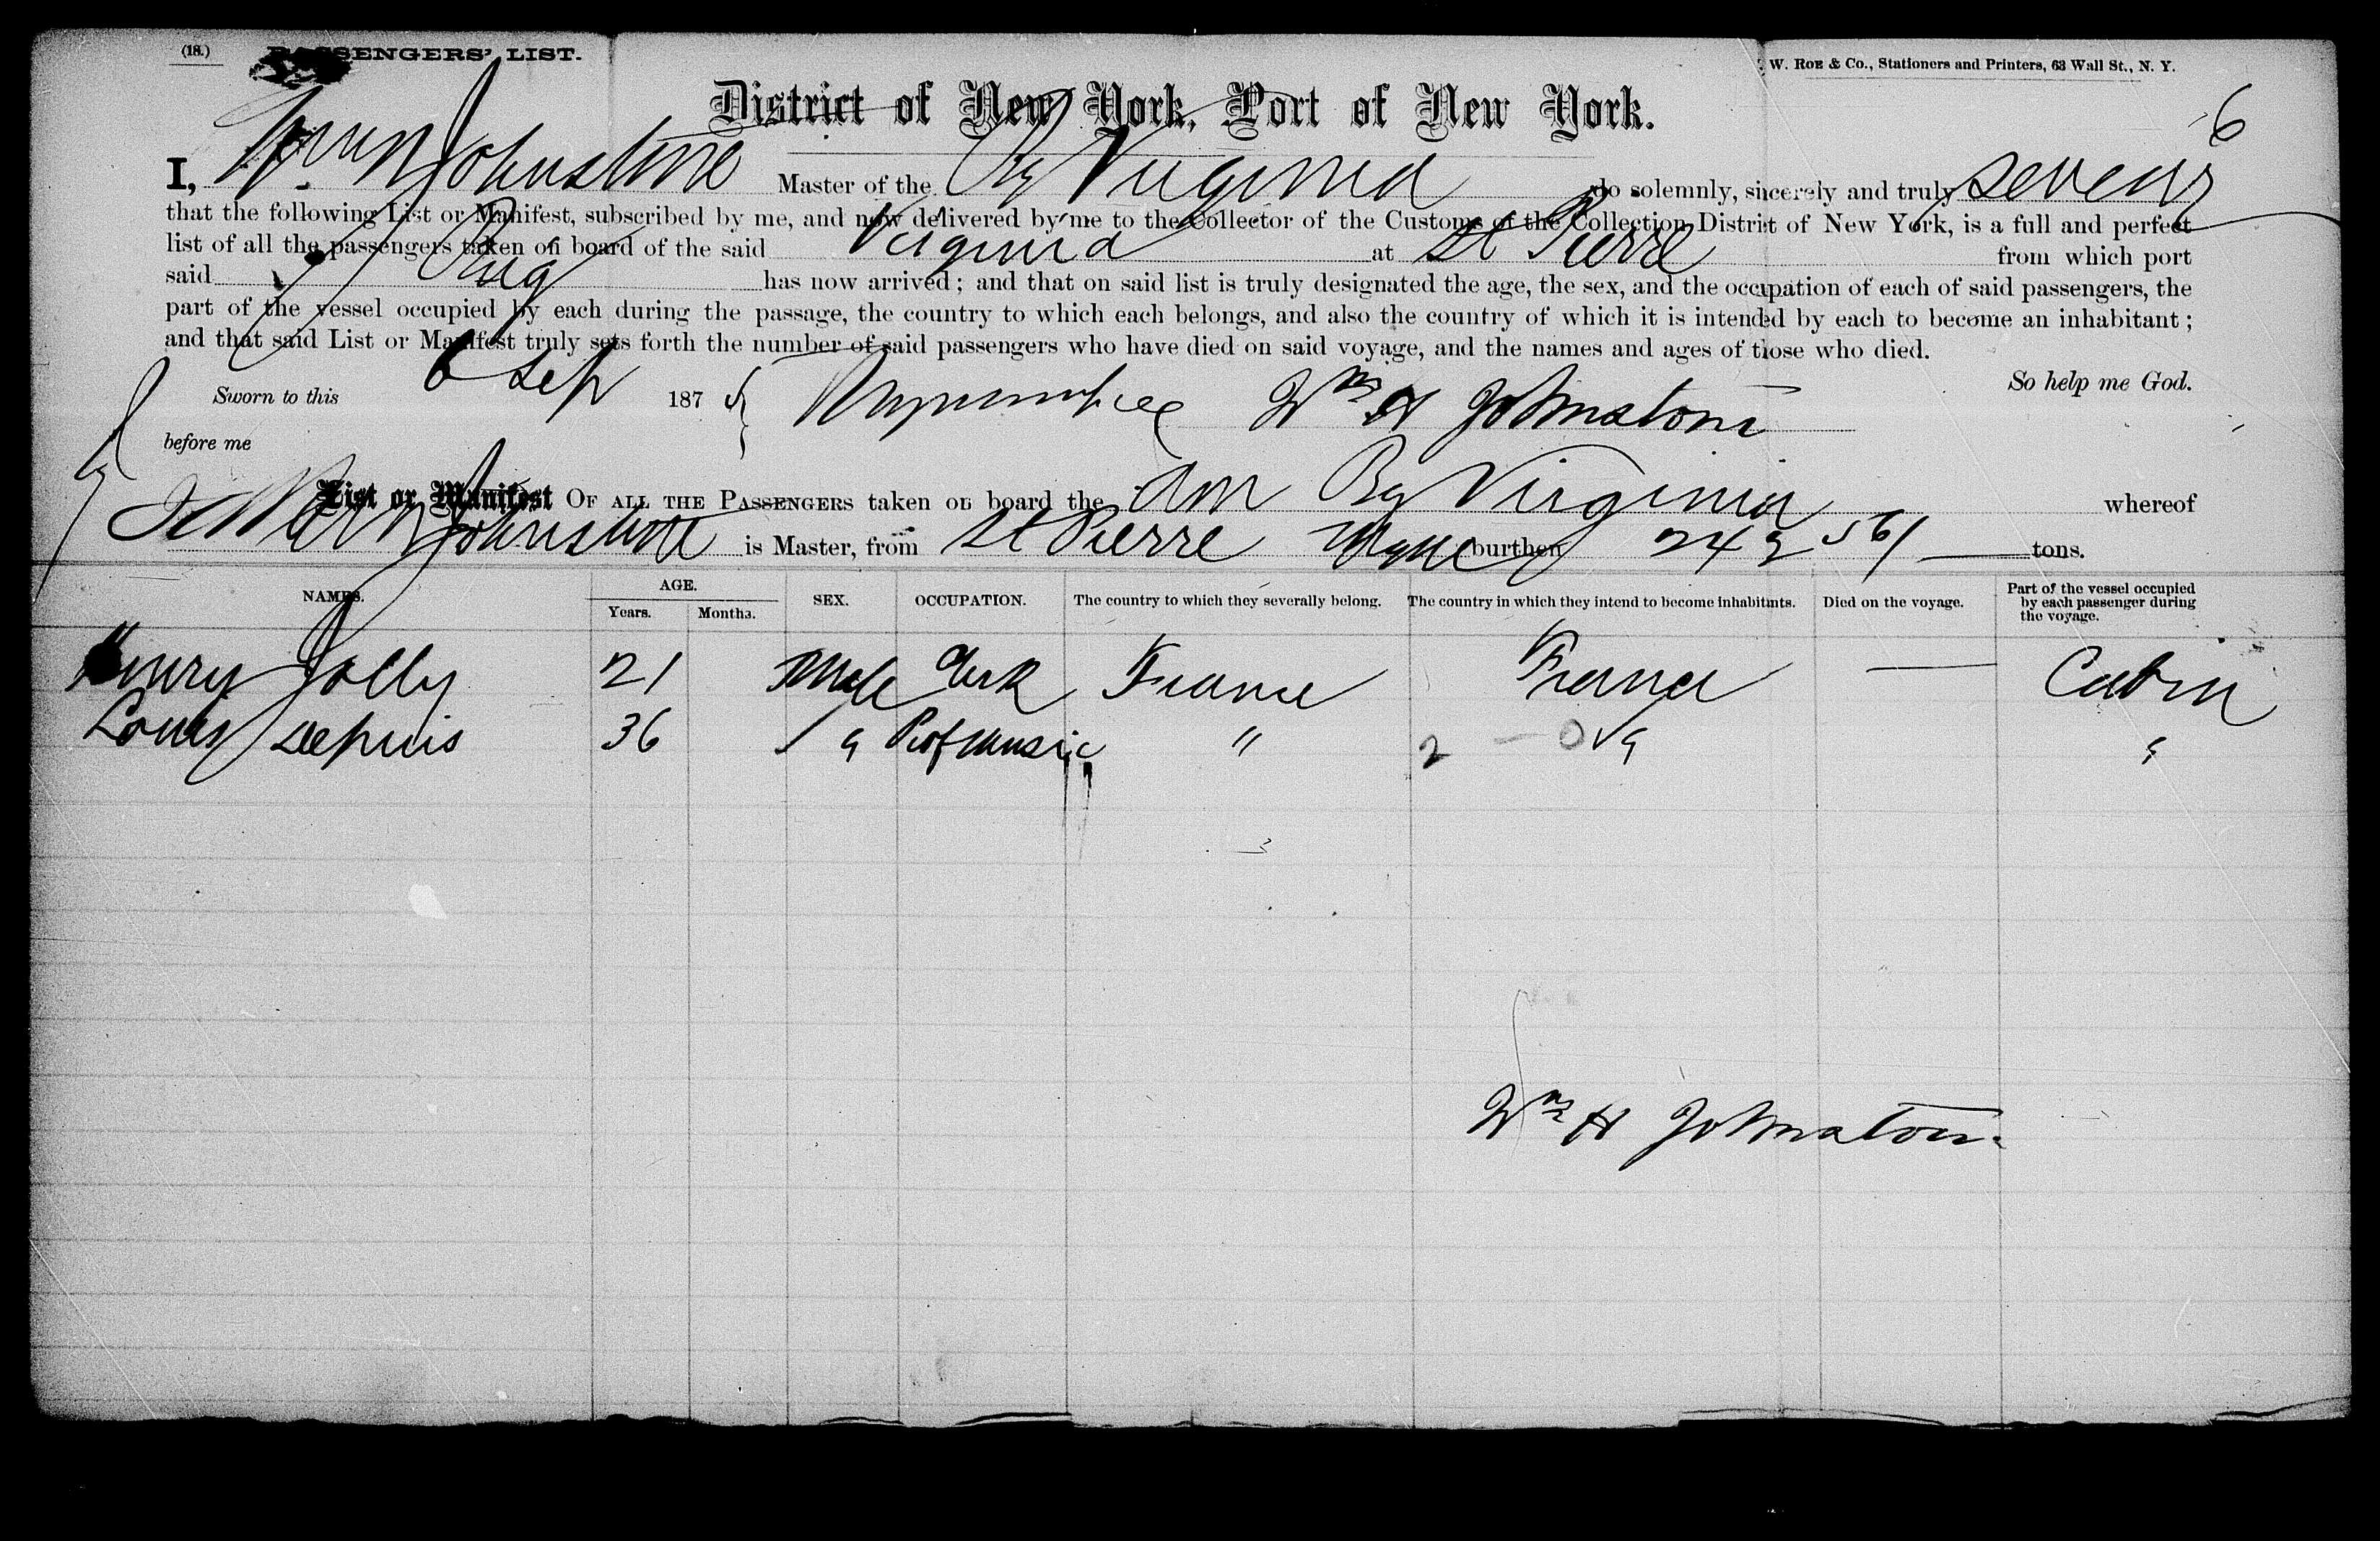 (18.) PASSENGERS' LIST. W. ROE & Co., Stationers and Printers, 63 Wall St., N. Y.
District of New York, Port of New York.
6
I, Wm H Johnstone Master of the Bg Virginia do solemnly, sincerely and truly swear
that the following List or Manifest, subscribed by me, and now delivered by me to the Collector of the Customs of the Collection District of New York, is a full and perfect
list of all the passengers taken on board of the said Virginia at St Pierre from which port
said Brig has now arrived; and that on said list is truly designated the age, the sex, and the occupation of each of said passengers, the
part of the vessel occupied by each during the passage, the country to which each belongs, and also the country of which it is intended by each to become an inhabitant;
and that said List or Manifest truly sets forth the number of said passengers who have died on said voyage, and the names and ages of those who died.
So help me God.
Sworn to this 6 Sep 187 Wm H Johnstone
before me
List or Manifest OF ALL THE PASSENGERS taken on board the Am Bg Virginia whereof
Johnstone is Master, from St Pierre burthen 242 tons.
NAMES. AGE. Years. Months. SEX. OCCUPATION. The country to which they severally belong. The country in which they intend to become inhabitants. Died on the voyage. Part of the vessel occupied by each passenger during the voyage.
Henry Jolly 21 Male Clerk France France — Cabin
Louis Depuis 36 " Prof Music " 2 — 0 " "
Wm H Johnstone